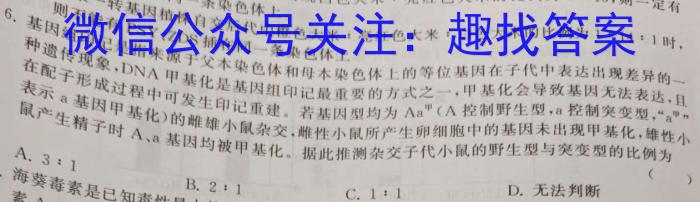 微信公众号关注：趣找答案
6. 基因
来源于父本染色体和母本染色体上的等位基因在子代中表达出现差异的一
种遗传现象,DNA甲基化是基因组印记最重要的方式之一,甲基化会导致基因无法表达,且
在配子形成过程中可发生印记重建。若基因型均为Aa甲(A控制野生型,a控制突变型,“a甲”
表示a基因甲基化)的雌雄小鼠杂交,雌性小鼠所产生卵细胞中的基因未出现甲基化,雄性小
鼠产生精子时A、a基因均被甲基化。据此推测杂交子代小鼠的野生型与突变型的比例为
( )
A. 3∶1
B. 2∶1
C. 1∶1
D. 无法判断
海葵毒素是已知毒性